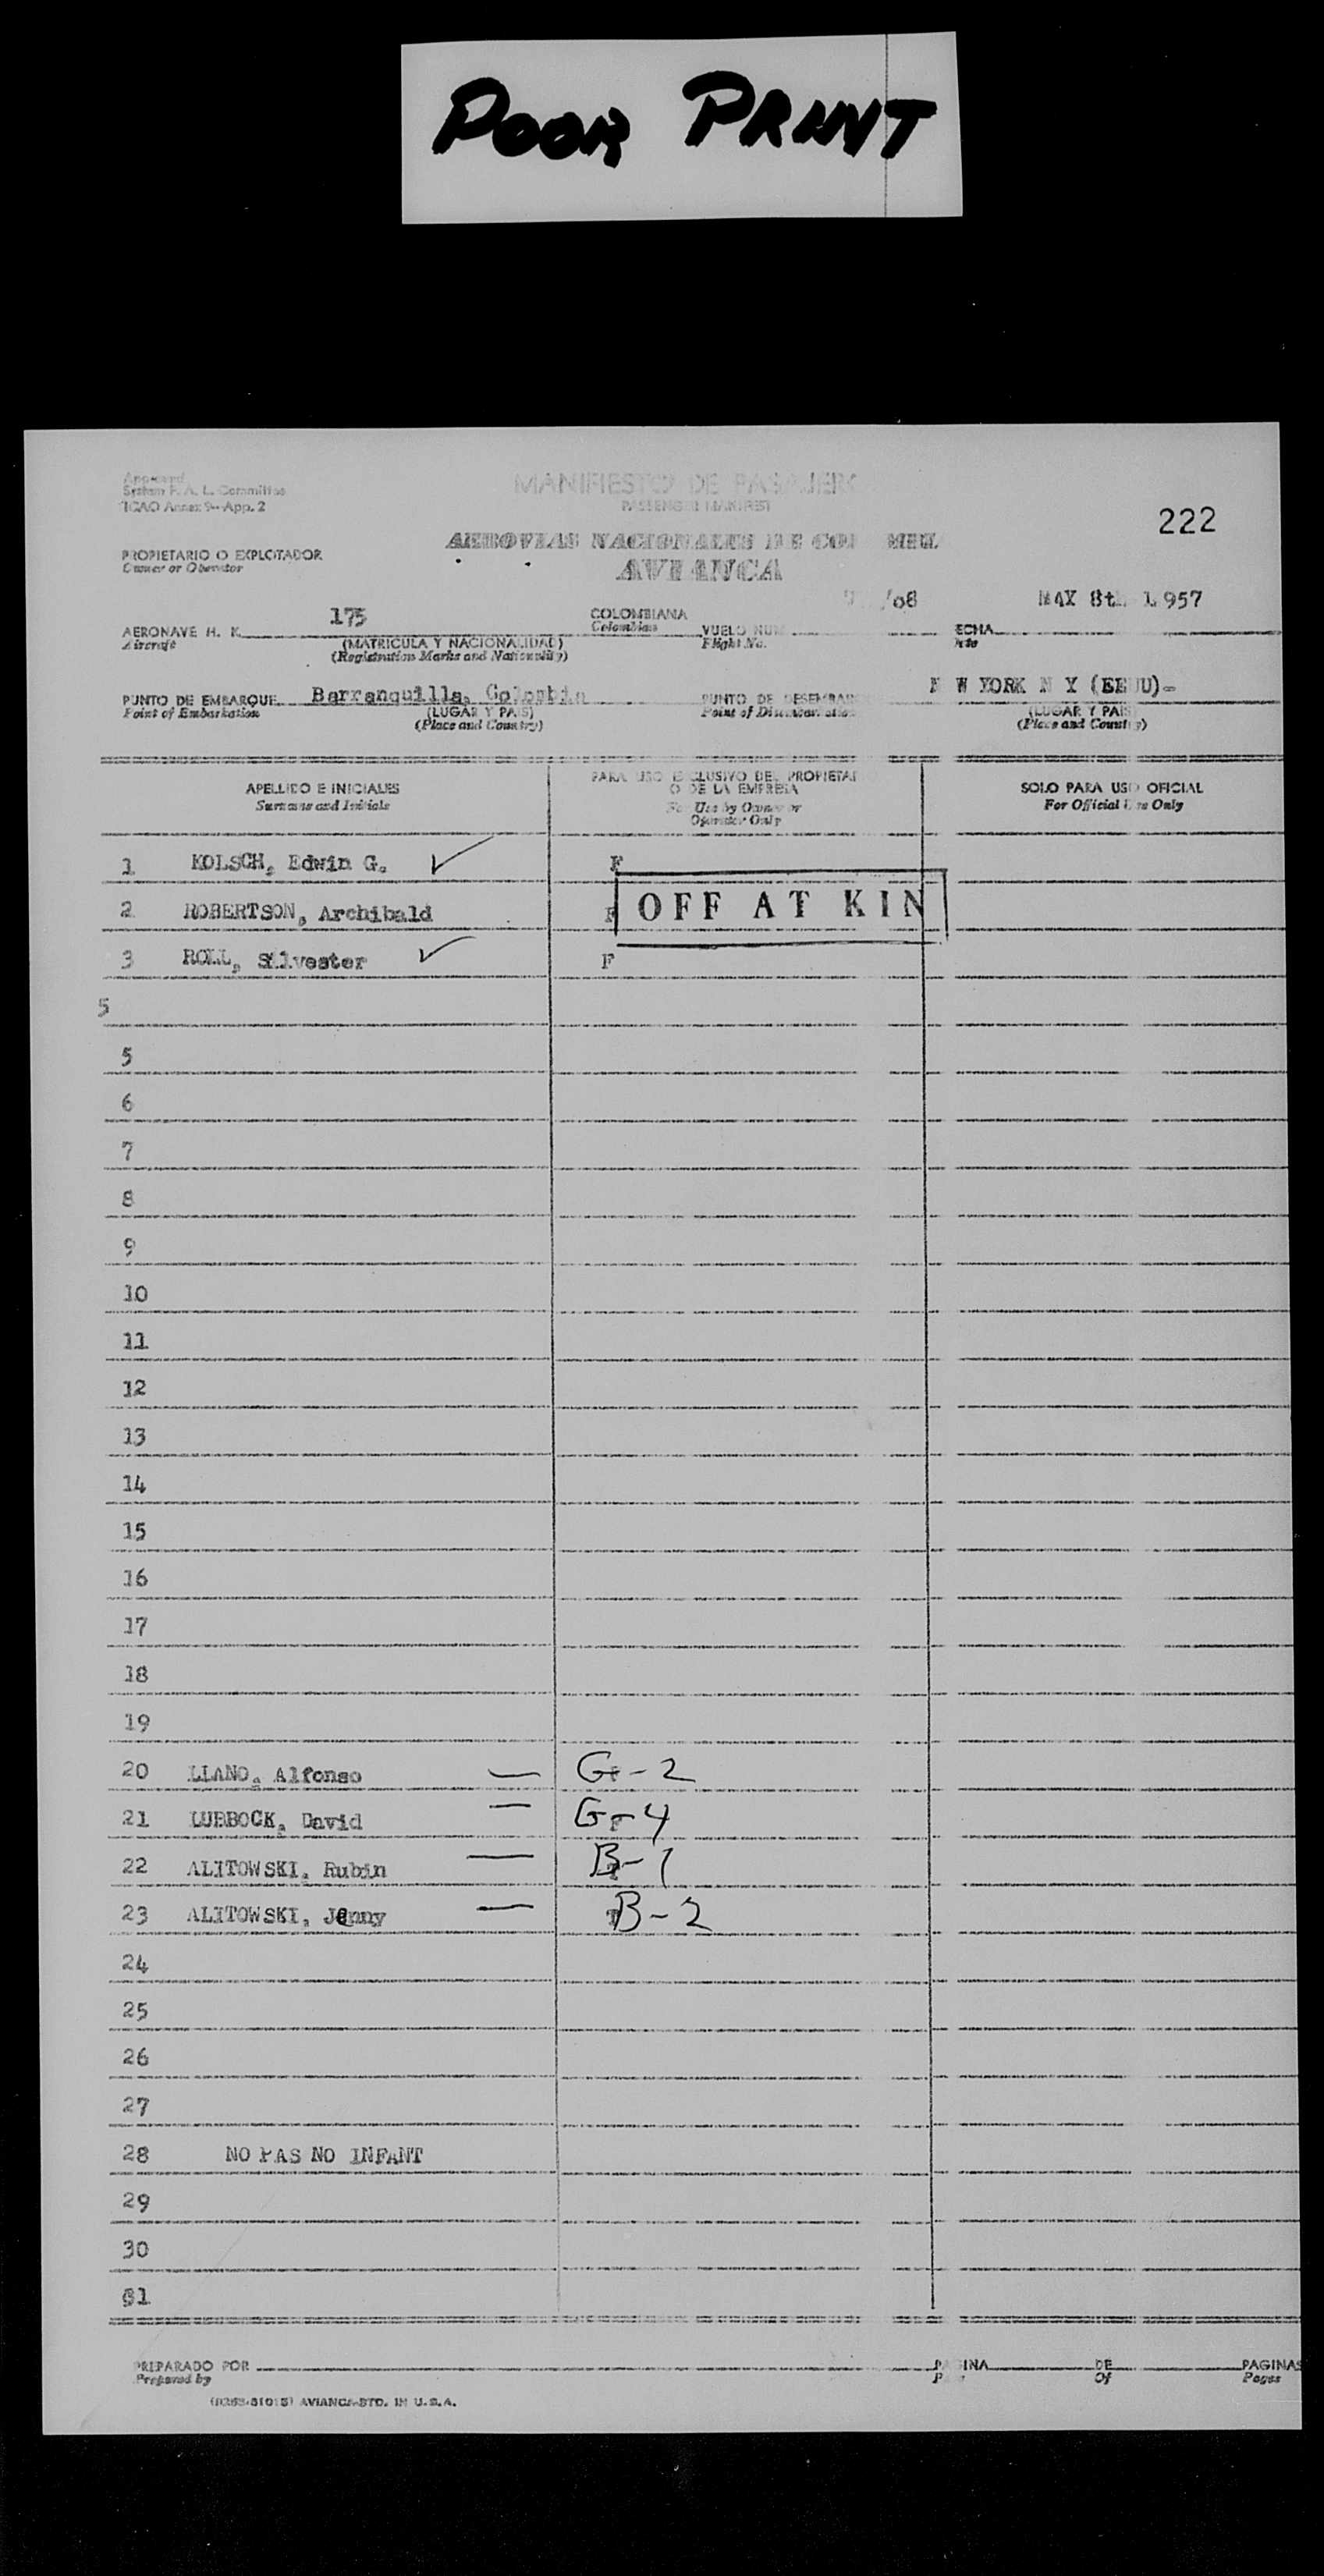 POOR PRINT
Approved
System F. A. L. Committee
ICAO Annex 9-App. 2
MANIFIESTO DE PASAJER
PASSENGER MANIFEST
222
PROPIETARIO O EXPLOTADOR
Owner or Operator
AEROVIAS NACIONALES DE
AVIANCA
AERONAVE H. K. 175 COLOMBIANA VUELO NUM /08 ECHA MAY 8t 1957
Aircraft Colombian Flight No.
(MATRICULA Y NACIONALIDAD)
(Registration Marks and Nationality)
PUNTO DE EMBARQUE Barranquilla, Colombia PUNTO DE DESEMBAR W YORK N Y (EEUU)-
Point of Embarkation
(LUGAR Y PAIS) (LUGAR Y PAIS
(Place and Country) (Place and Country)
APELLIDO E INICIALES PARA USO EXCLUSIVO DEL PROPIETAR SOLO PARA USO OFICIAL
O DE LA EMPRESA
Surname and Initials For Use by Owner or For Official Use Only
Operator Only
1 KOLSCH, Edwin G. F
2 ROBERTSON, Archibald F OFF AT KIN
3 ROLL, Silvester F
5
5
6
7
8
9
10
11
12
13
14
15
16
17
18
19
20 LLANO, Alfonso G-2
21 LUBBOCK, David G-4
22 ALITOWSKI, Rubin B-1
23 ALITOWSKI, Jenny B-2
24
25
26
27
28 NO PAS NO INFANT
29
30
31
PREPARADO POR PAGINA DE PAGINAS
Prepared by Of Pages
AVIANCA-STD. IN U.S.A.